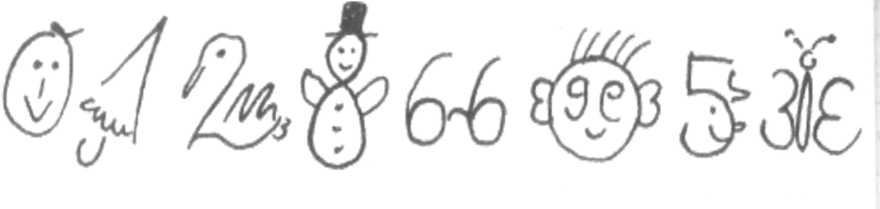 0 1 2 8 6-6 9 5 3